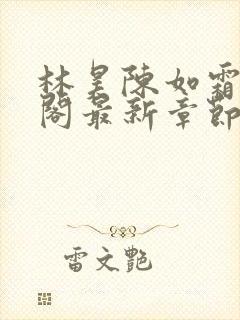 林昊陳如霜
閣最新章節
雷文艷